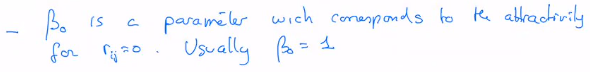 - β₀ is a parameter wich corresponds to the attractivity
for rᵢⱼ=0. Usually β₀ = 1